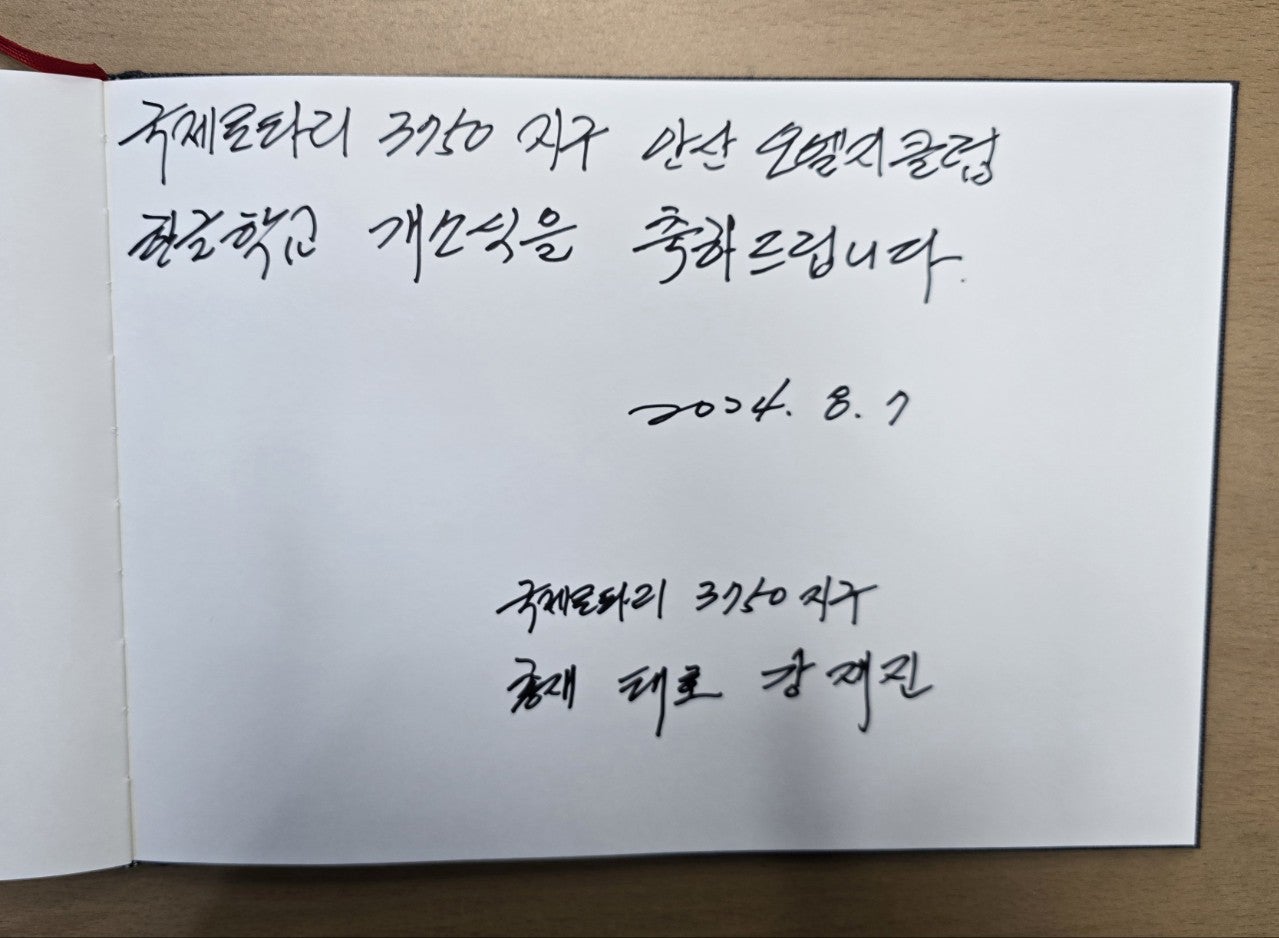 국제로타리 3750 지구 안산 모벨지클럽
한글학교 개소식을 축하드립니다.
2024. 8. 7
국제로타리 3750 지구
총재 태로 강재진